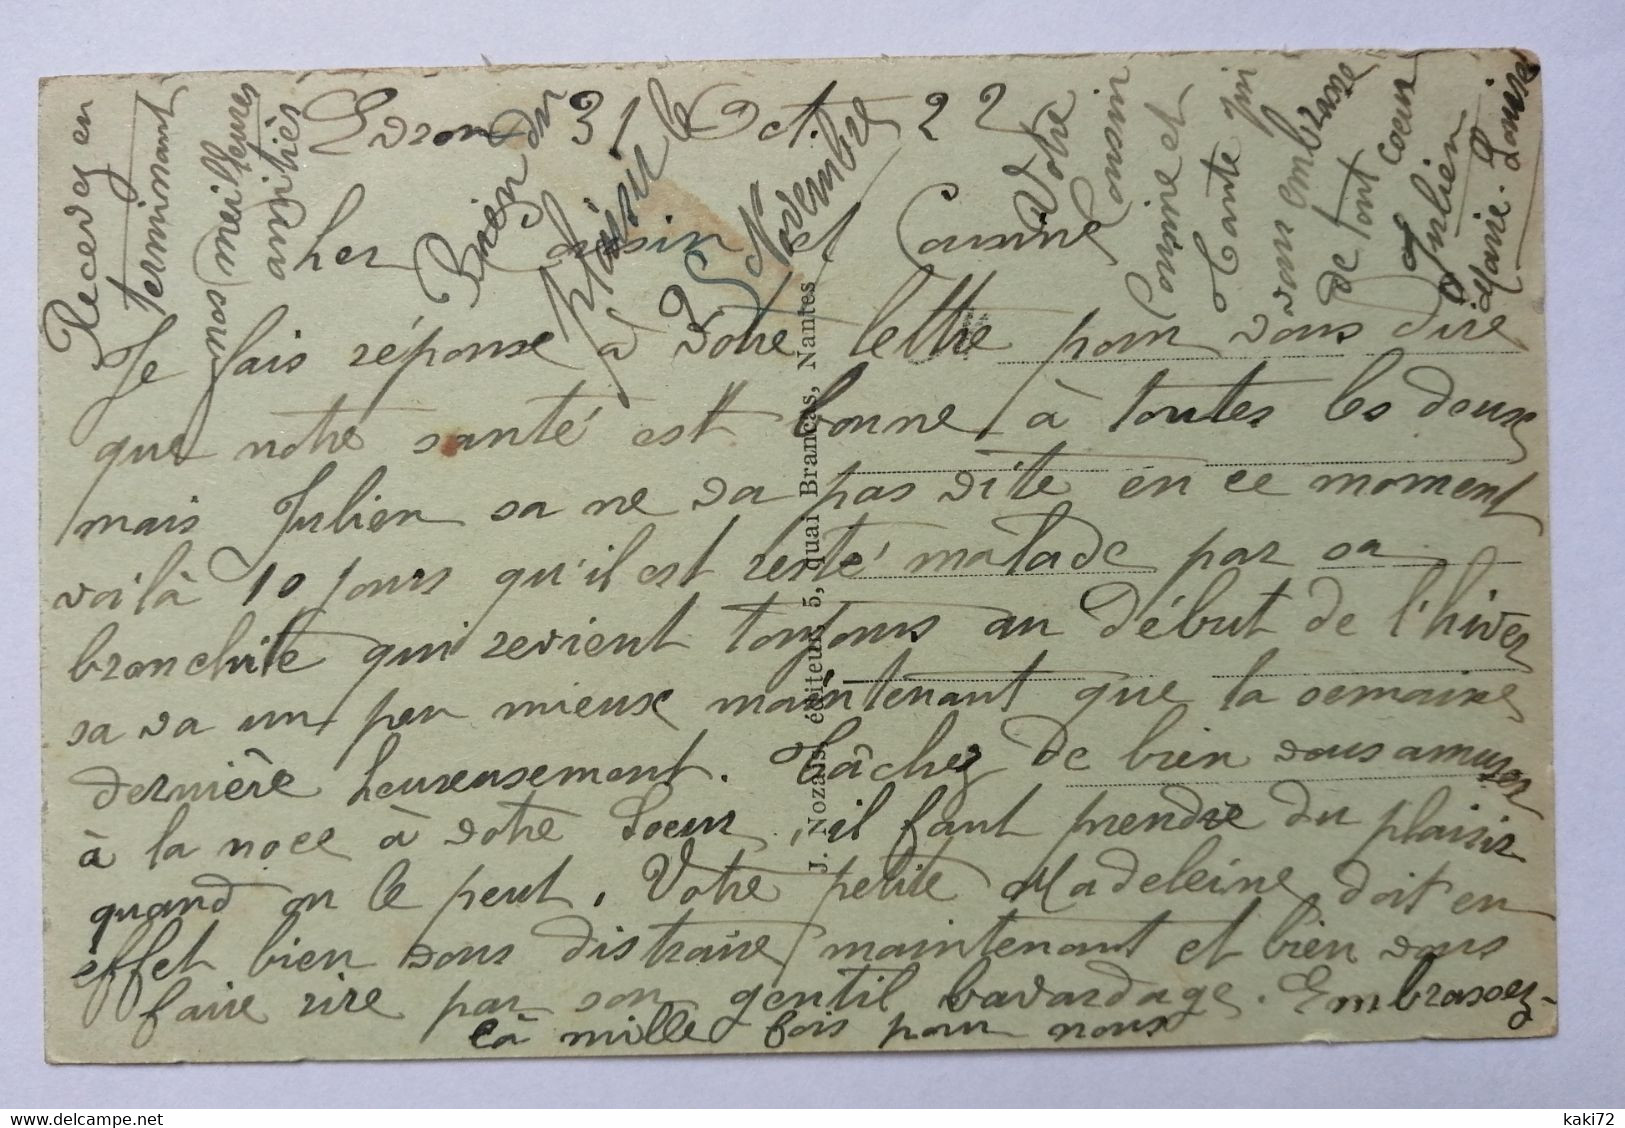 Evron 31 Oct. 22
Cher Cousin et Cousine
Je fais réponse à votre lettre pour vous dire
que notre santé est bonne à toutes les deux
mais Julien sa ne va pas vite en ce moment
voilà 10 jours qu'il est resté malade par sa
bronchite qui revient toujours au début de l'hiver
sa va un peu mieux maintenant que la semaine
dernière heureusement. Tâchez de bien vous amuser
à la noce à votre Soeur, il faut prendre du plaisir
quand on le peut. Votre petite Madeleine doit en
effet bien vous distraire maintenant et bien vous
faire rire par son gentil bavardage. Embrassez-
là mille fois pour nous
Recevez en
terminant
nos meilleures
amitiés
Bien du
plaisir le
2 Novembre
Votre
Cousin
Cousine et
Tante qui
vous embrasse
de tout coeur
Julien
Marie-Louise
J. Nozais, éditeur, 5, quai Brancas, Nantes
kaki72